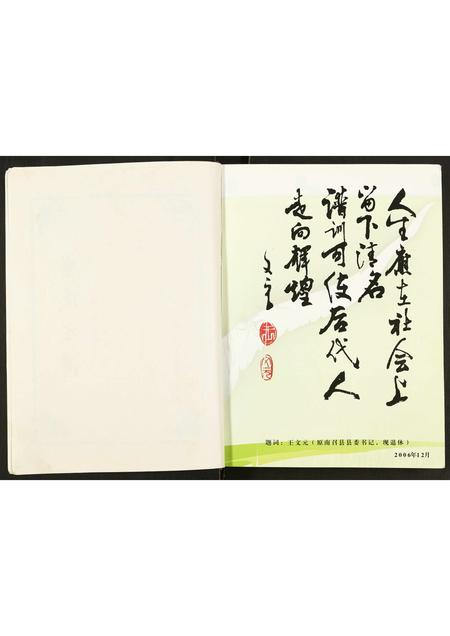 人生应在社会上
留下清名
谱训可使后代人
走向辉煌
文元
题词：王文元（原南召县县委书记，现退休）
2006年12月